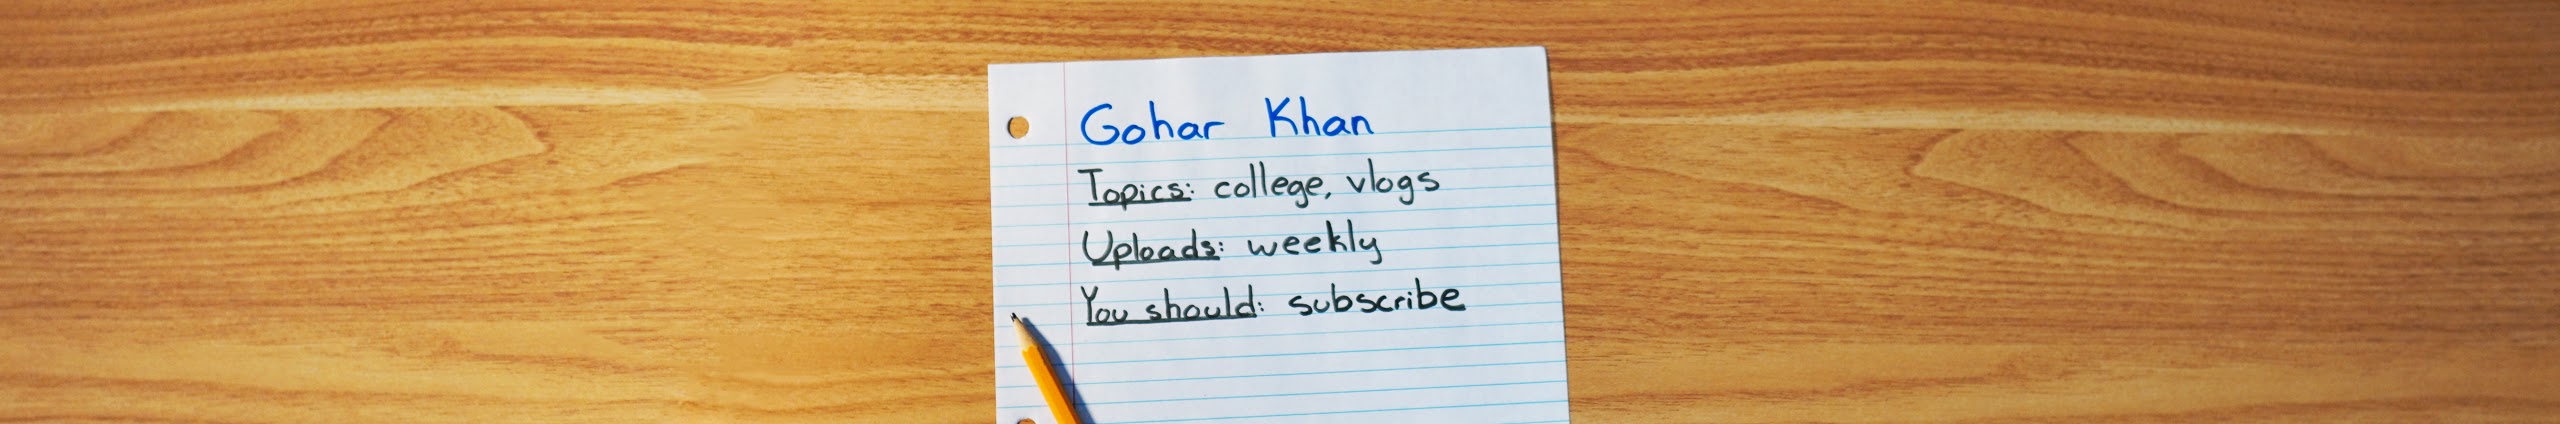 Gohar Khan
Topics: college, vlogs
Uploads: weekly
You should: subscribe